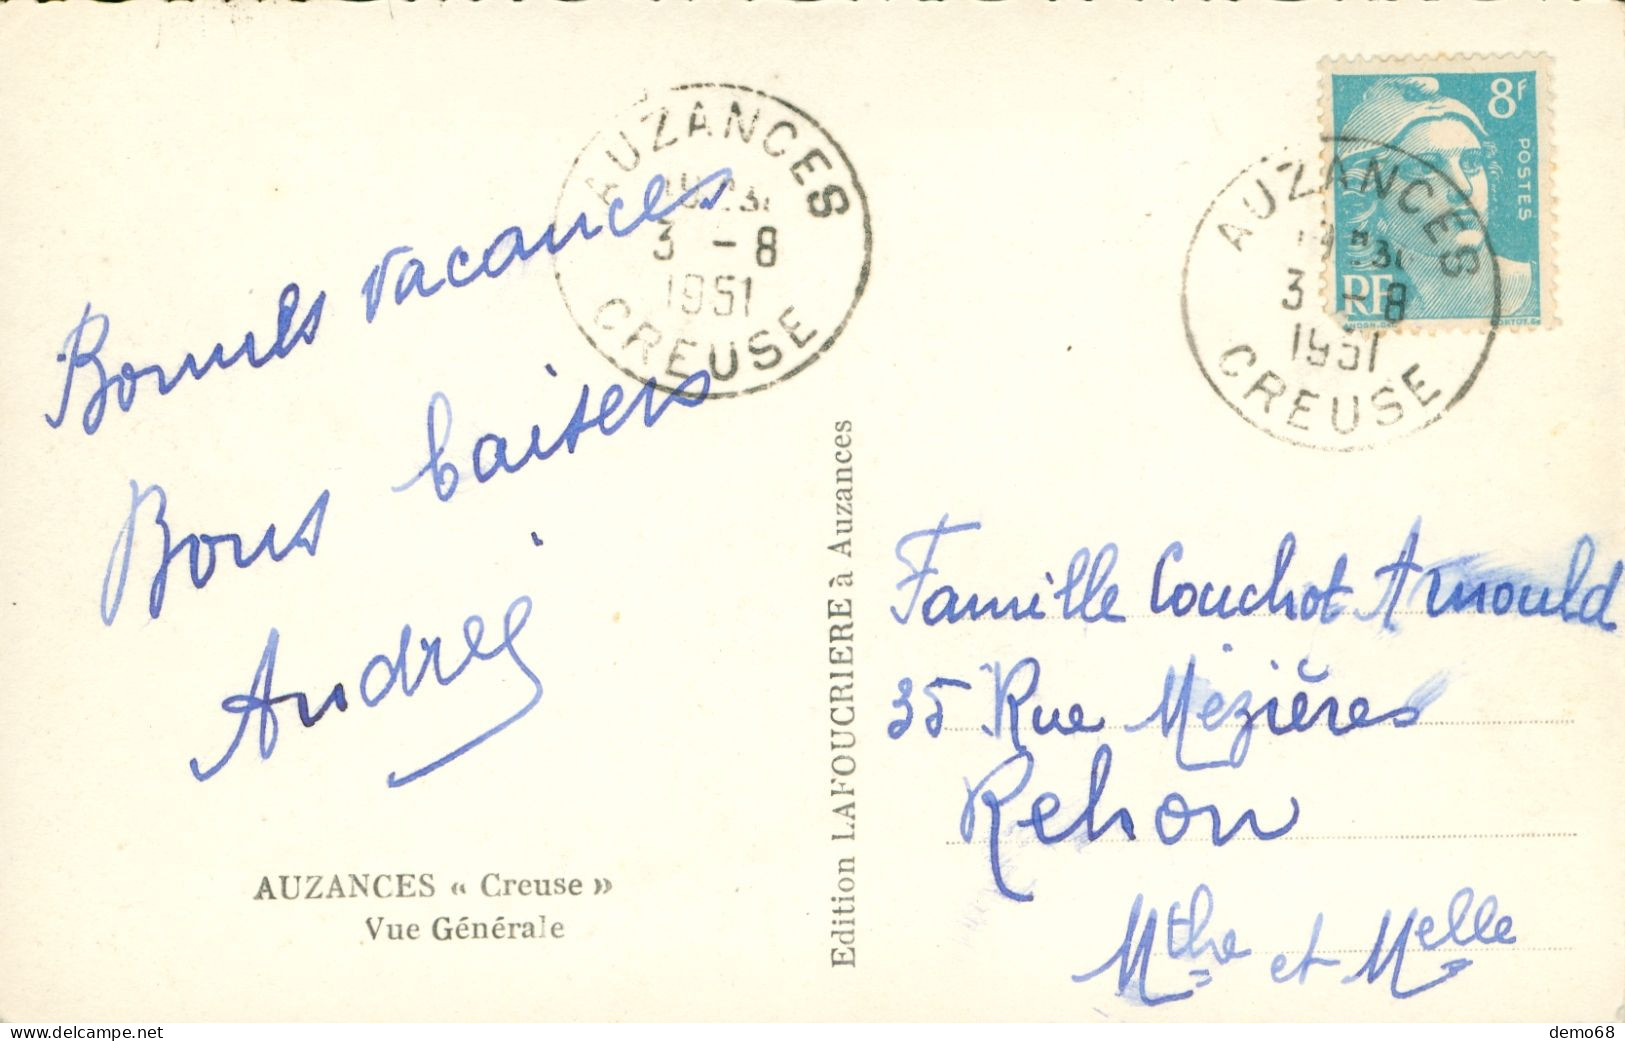 Bonnes vacances
Bons baisers
Andrée
AUZANCES « Creuse »
Vue Générale
AUZANCES
3 - 8
1951
CREUSE
Edition LAFOUCRIERE à Auzances
8F
POSTES
RF
AUZANCES
3 - 8
1951
CREUSE
Famille Couchot Arnould
35 Rue Mézières
Rehon
Mthe et Melle
demo68